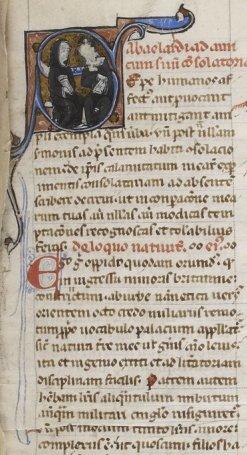 abaelardi ad ami
cum suum consolatoria
Sepe humanos af
fectus aut provocant
aut mitigant am
plius exempla quam verba. Unde post nonnullam
sermonis ad presentem habiti consolacio
nem de ipsis calamitatum mearum experi
mentis consolatoriam ad absente
scribere decrevi ut in comparacione mea
rum tuas aut nullas aut modicas temp
taciones recognoscas et tolerabilius
feras. de loquo nativitatis
Ego igitur oppido quodam oriundus quod
in ingressu minoris britannie
constructum ab urbe namnetica versus
orientem octo credo miliariis remo
tum proprio vocabulo palacium appellatur
sicut natura terre mee vel generis animo levis
ita et ingenio extiti et ad litteratoriam
disciplinam facilis. Patrem autem
habebam litteris aliquantulum imbutum
antequam militari cingulo insigniretur
unde postmodum tanto litteras amore
complexus est ut quoscumque filios ha